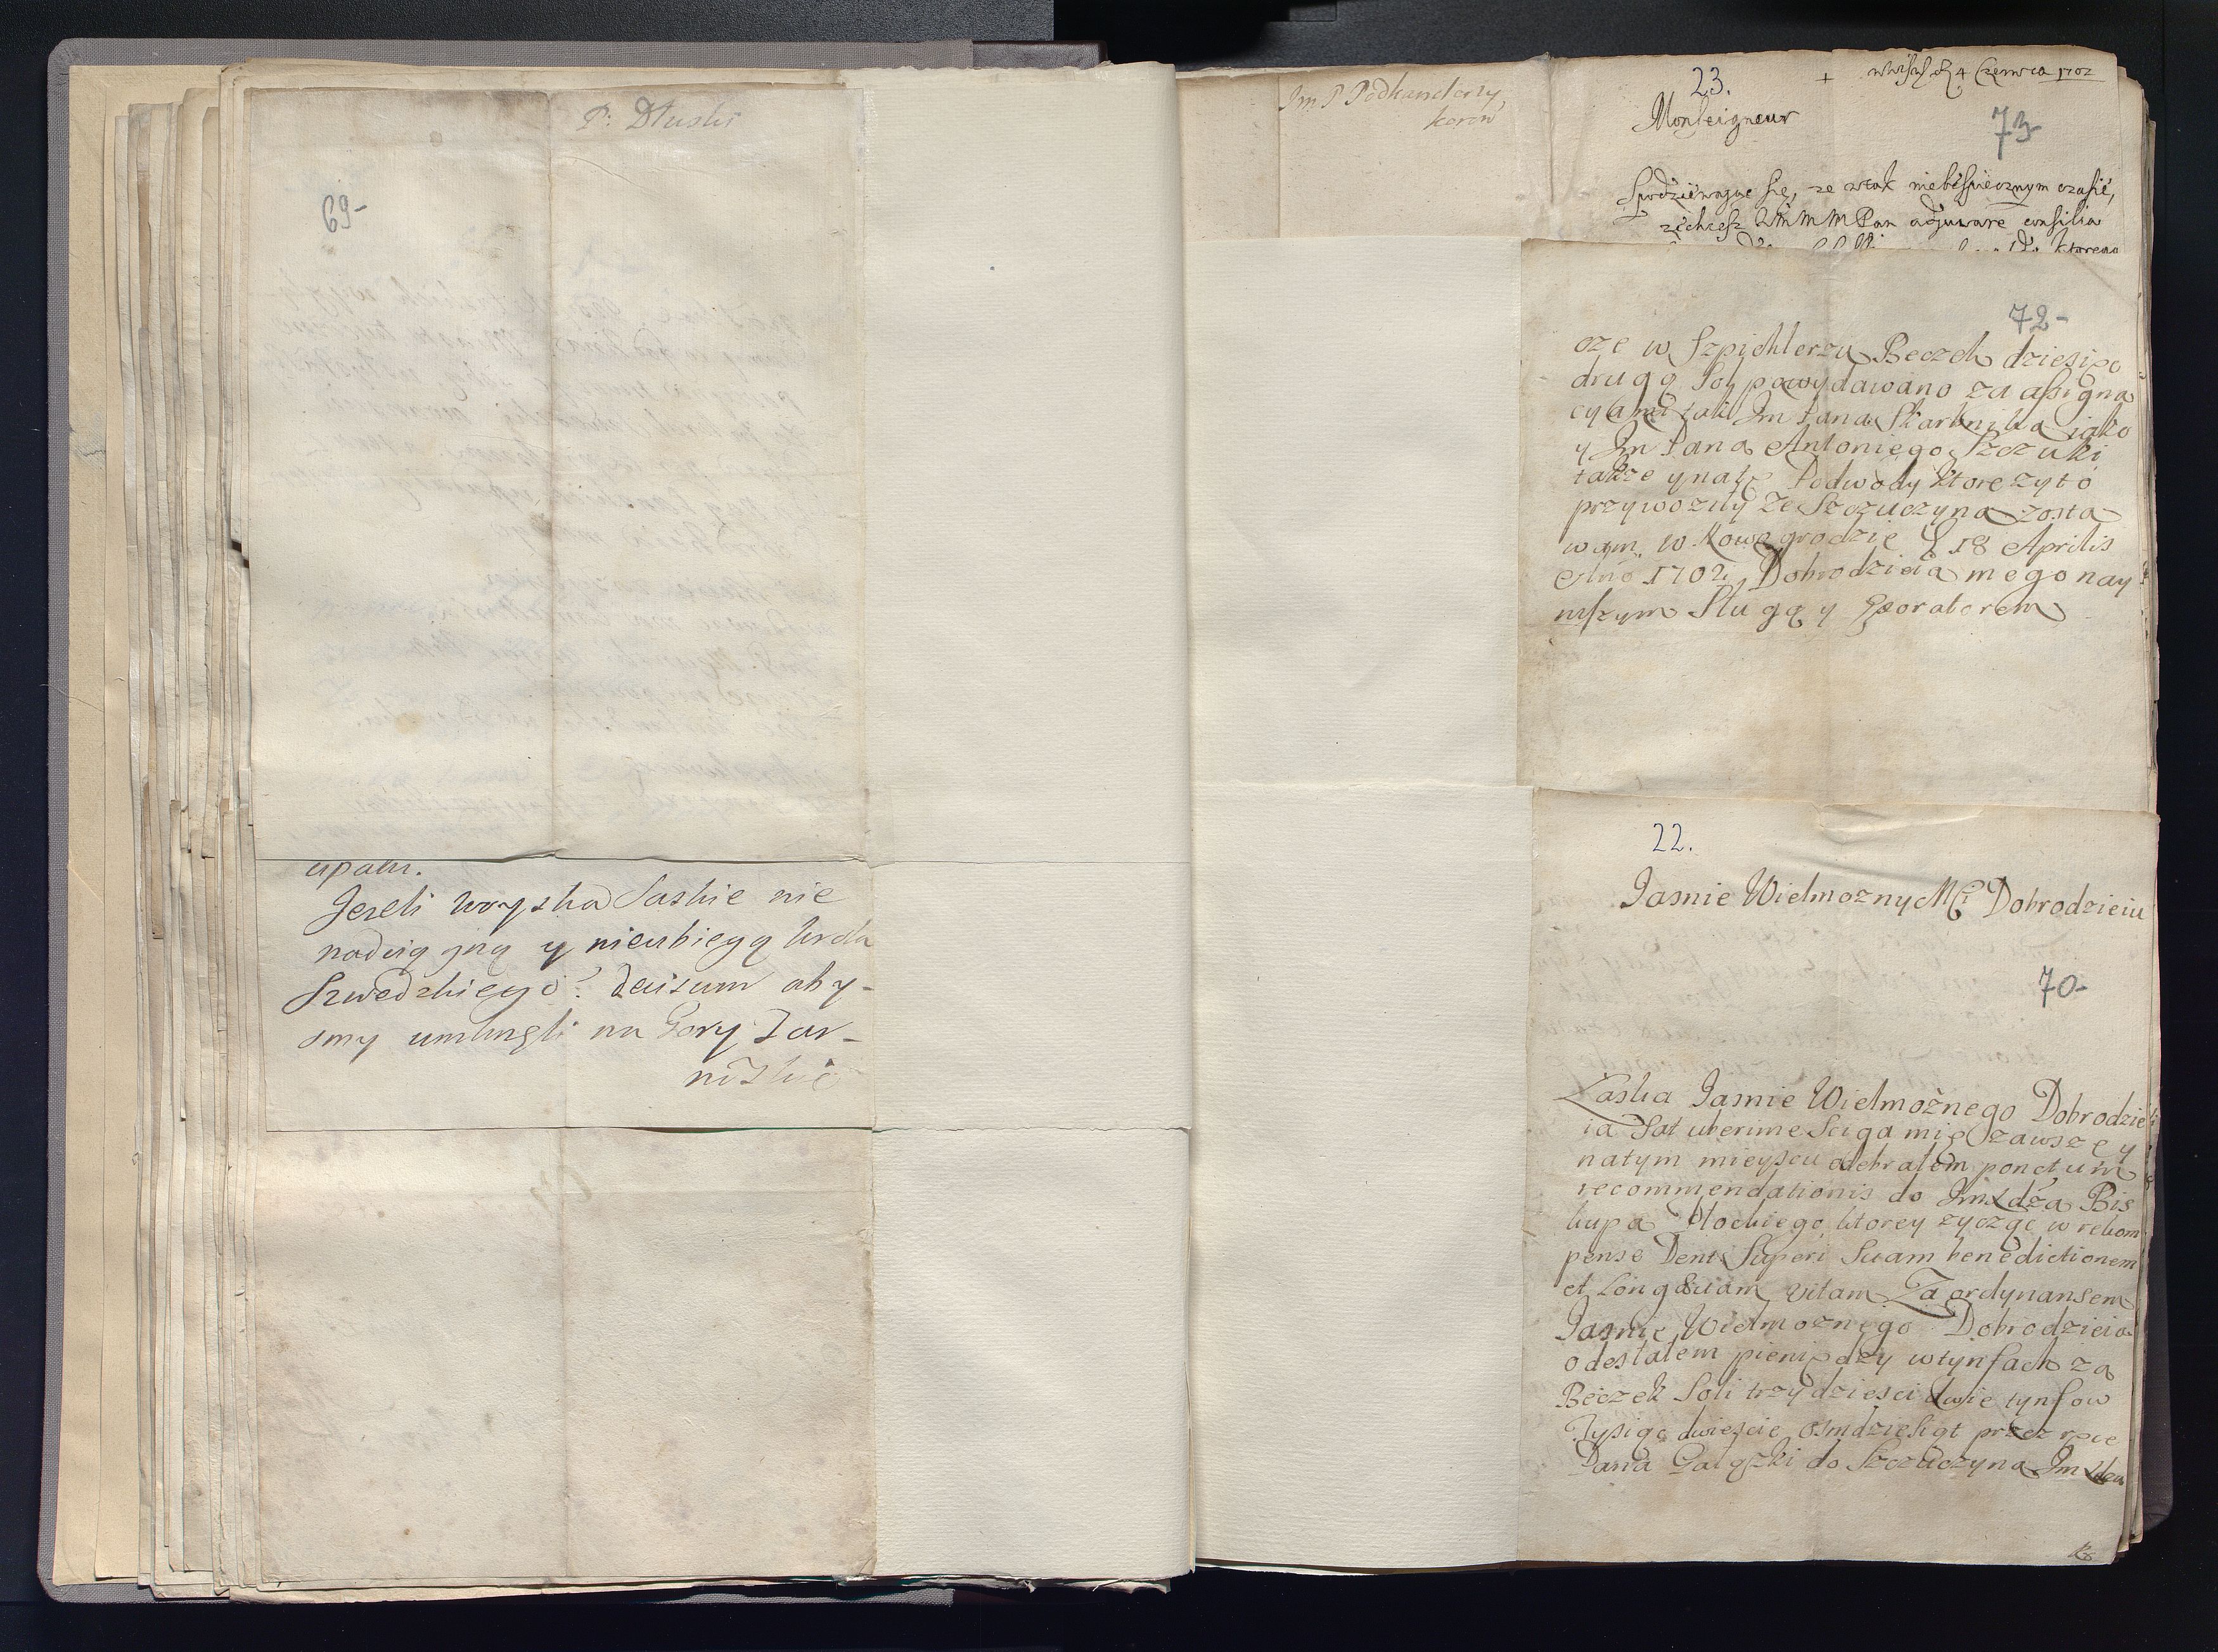 P: Dłuski
69-
upału.
Jezeli woyska Saskie nie
nadciągną y nieubiegą krola
Szwedzkiego? deisum aby-
smy umknęli na Gory Tar-
nizkie
Im P Podkanclerzy
koron
23.
4 Czerwca 1702
Monseigneur
73-
Spodziewaiąc się, ze wtak niebespiecznym czasie,
zechcesz WMMMPan adjuware consilia
ktorego
72-
cze w Szpichlerzu Beczek dziesięc
drugą Sol powydawano za assigna
cyami tak Im Pana Skarbnika iako
y Im Pana Antoniego Szczuki
takze y na te Podwody ktore zyto
przywoziły ze Szczuczyna zosta
wam w Nowogrodzie D 18 Aprilis
Ano 1702 Dobrodzieia mego nay
nizszym Sługą y Exoratorem
22.
Jasnie Wielmozny Mci Dobrodzieiu
70-
Łaska Jasnie Wielmoznego Dobrodzie
ia Sat uberime sciga mię zawsze y
natym mieyscu odebrałem ponctum
recommendationis do Im Xdza Bis
kupa Płockiego, ktorey zycząc w rekom
pense Dent Superi Suam benedictionem
et Longævam vitam. Za ordynansem
Jasnie Wielmoznego Dobrodzieia
odesłałem pieniędzy w tynfach za
Beczek Soli trzydziesci dwie tynfow
Tysiąc dwiescie osmdziesiąt przez ręce
Pana Gałąski do Szczuczyna Im